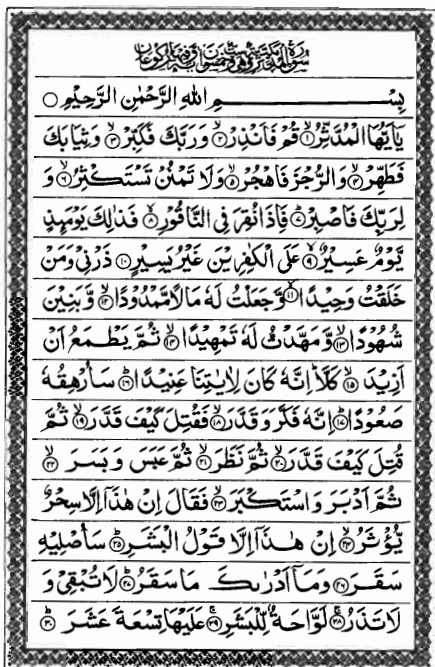 سُوْرَةُ الْمُدَّثِّرِ مَكِّيَّةٌ وَّهِيَ سِتٌّ وَّخَمْسُوْنَ اٰيَةً وَّفِيْهَا رُكُوْعَانِ
بِسْمِ اللهِ الرَّحْمٰنِ الرَّحِيْمِ ○
يٰۤاَيُّهَا الْمُدَّثِّرُ ۙ﴿۱﴾ قُمْ فَاَنْذِرْ ۙ﴿۲﴾ وَرَبَّكَ فَكَبِّرْ ۙ﴿۳﴾ وَثِيَابَكَ
فَطَهِّرْ ۙ﴿۴﴾ وَالرُّجْزَ فَاهْجُرْ ۙ﴿۵﴾ وَلَا تَمْنُنْ تَسْتَكْثِرُ ۙ﴿۶﴾ وَ
لِرَبِّكَ فَاصْبِرْ ؕ﴿۷﴾ فَاِذَا نُقِرَ فِي النَّاقُوْرِ ۙ﴿۸﴾ فَذٰلِكَ يَوْمَئِذٍ
يَّوْمٌ عَسِيْرٌ ۙ﴿۹﴾ عَلَى الْكٰفِرِيْنَ غَيْرُ يَسِيْرٍ ﴿۱۰﴾ ذَرْنِيْ وَمَنْ
خَلَقْتُ وَحِيْدًا ۙ﴿۱۱﴾ وَّجَعَلْتُ لَهٗ مَالًا مَّمْدُوْدًا ۙ﴿۱۲﴾ وَّبَنِيْنَ
شُهُوْدًا ۙ﴿۱۳﴾ وَّمَهَّدْتُّ لَهٗ تَمْهِيْدًا ۙ﴿۱۴﴾ ثُمَّ يَطْمَعُ اَنْ
اَزِيْدَ ۙ﴿۱۵﴾ كَلَّا ؕ اِنَّهٗ كَانَ لِاٰيٰتِنَا عَنِيْدًا ؕ﴿۱۶﴾ سَاُرْهِقُهٗ
صَعُوْدًا ؕ﴿۱۷﴾ اِنَّهٗ فَكَّرَ وَقَدَّرَ ۙ﴿۱۸﴾ فَقُتِلَ كَيْفَ قَدَّرَ ۙ﴿۱۹﴾ ثُمَّ
قُتِلَ كَيْفَ قَدَّرَ ۙ﴿۲۰﴾ ثُمَّ نَظَرَ ۙ﴿۲۱﴾ ثُمَّ عَبَسَ وَبَسَرَ ۙ﴿۲۲﴾
ثُمَّ اَدْبَرَ وَاسْتَكْبَرَ ۙ﴿۲۳﴾ فَقَالَ اِنْ هٰذَاۤ اِلَّا سِحْرٌ
يُّؤْثَرُ ۙ﴿۲۴﴾ اِنْ هٰذَاۤ اِلَّا قَوْلُ الْبَشَرِ ؕ﴿۲۵﴾ سَاُصْلِيْهِ
سَقَرَ ﴿۲۶﴾ وَمَاۤ اَدْرٰىكَ مَا سَقَرُ ؕ﴿۲۷﴾ لَا تُبْقِيْ وَ
لَا تَذَرُ ۚ﴿۲۸﴾ لَوَّاحَةٌ لِّلْبَشَرِ ۚ﴿۲۹﴾ عَلَيْهَا تِسْعَةَ عَشَرَ ؕ﴿۳۰﴾